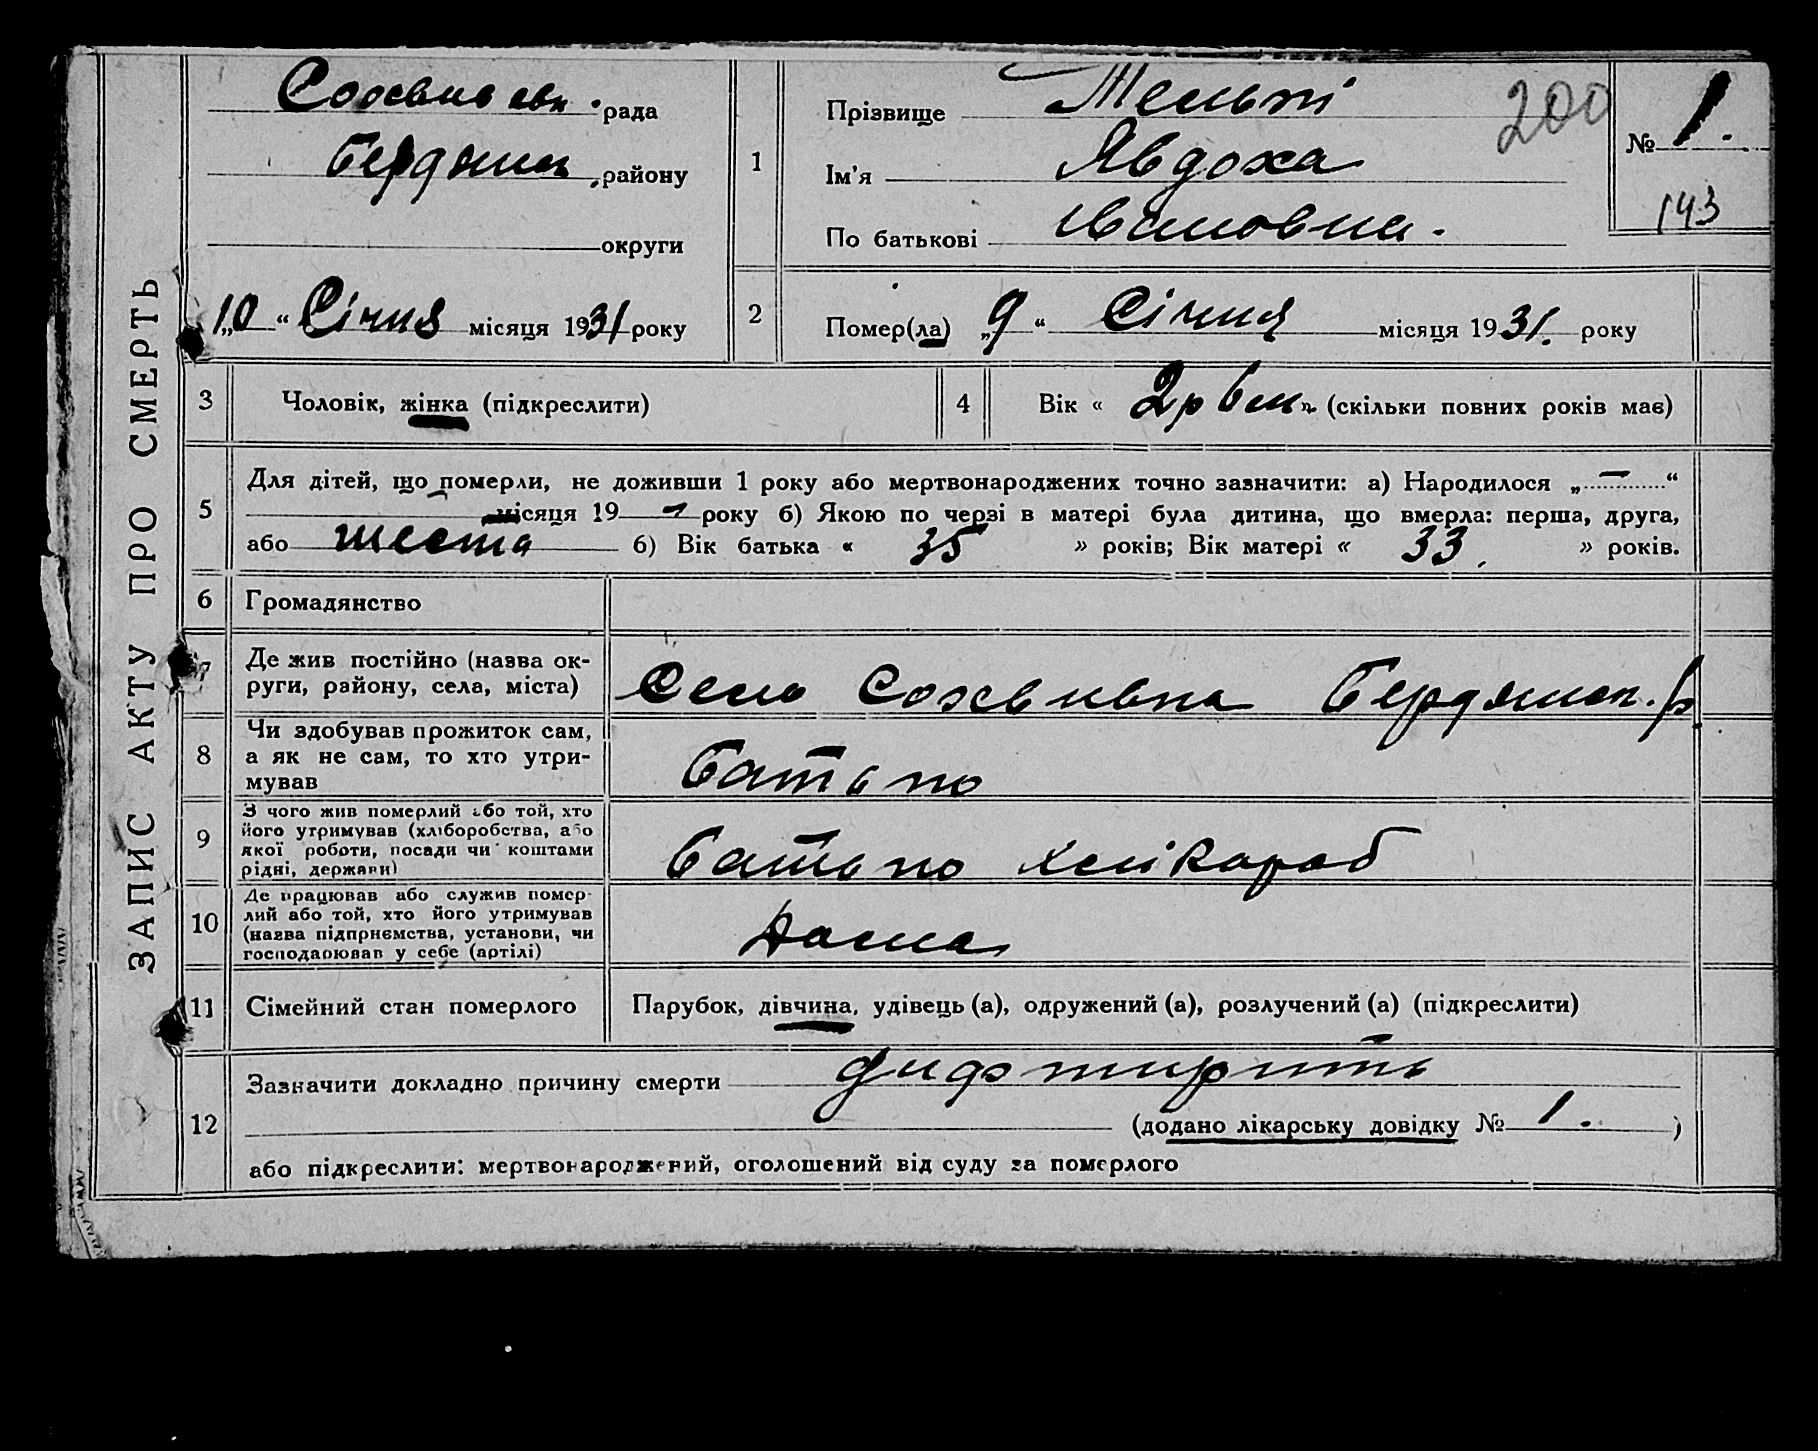 ЗАПИС АКТУ ПРО СМЕРТЬ
рада
Бердянськ. району
округи
„10“ Січня місяця 1931 року
1
Прізвище
Ім'я Явдоха
По батькові Івановна.
200
№ 1.
143
2
Помер(ла) „9“ Січня місяця 1931. року
3
Чоловік, жінка (підкреслити)
4
Вік « 2р 6 м ». (скільки повних років має)
5
Для дітей, що померли, не доживши 1 року або мертвонароджених точно зазначити: а) Народилося „ — “
місяця 19 — року б) Якою по черзі в матері була дитина, що вмерла: перша, друга,
або шеста б) Вік батька « 35 » років; Вік матері « 33 » років.
6
Громадянство
7
Де жив постійно (назва ок-
руги, району, села, міста)
Село Софьивка Бердянськ. р.
8
Чи здобував прожиток сам,
а як не сам, то хто утри-
мував
батько
9
З чого жив померлий або той, хто
його утримував (хліборобства, або
якої роботи, посади чи коштами
рідні, держави)
батько хлібороб
10
Де працював або служив помер-
лий або той, хто його утримував
(назва підприємства, установи, чи
господарював у себе (артілі)
дома
11
Сімейний стан померлого
Парубок, дівчина, удівець (а), одружений (а), розлучений (а) (підкреслити)
12
Зазначити докладно причину смерти дифтирить
(додано лікарську довідку № 1. )
або підкреслити: мертвонароджений, оголошений від суду за померлого